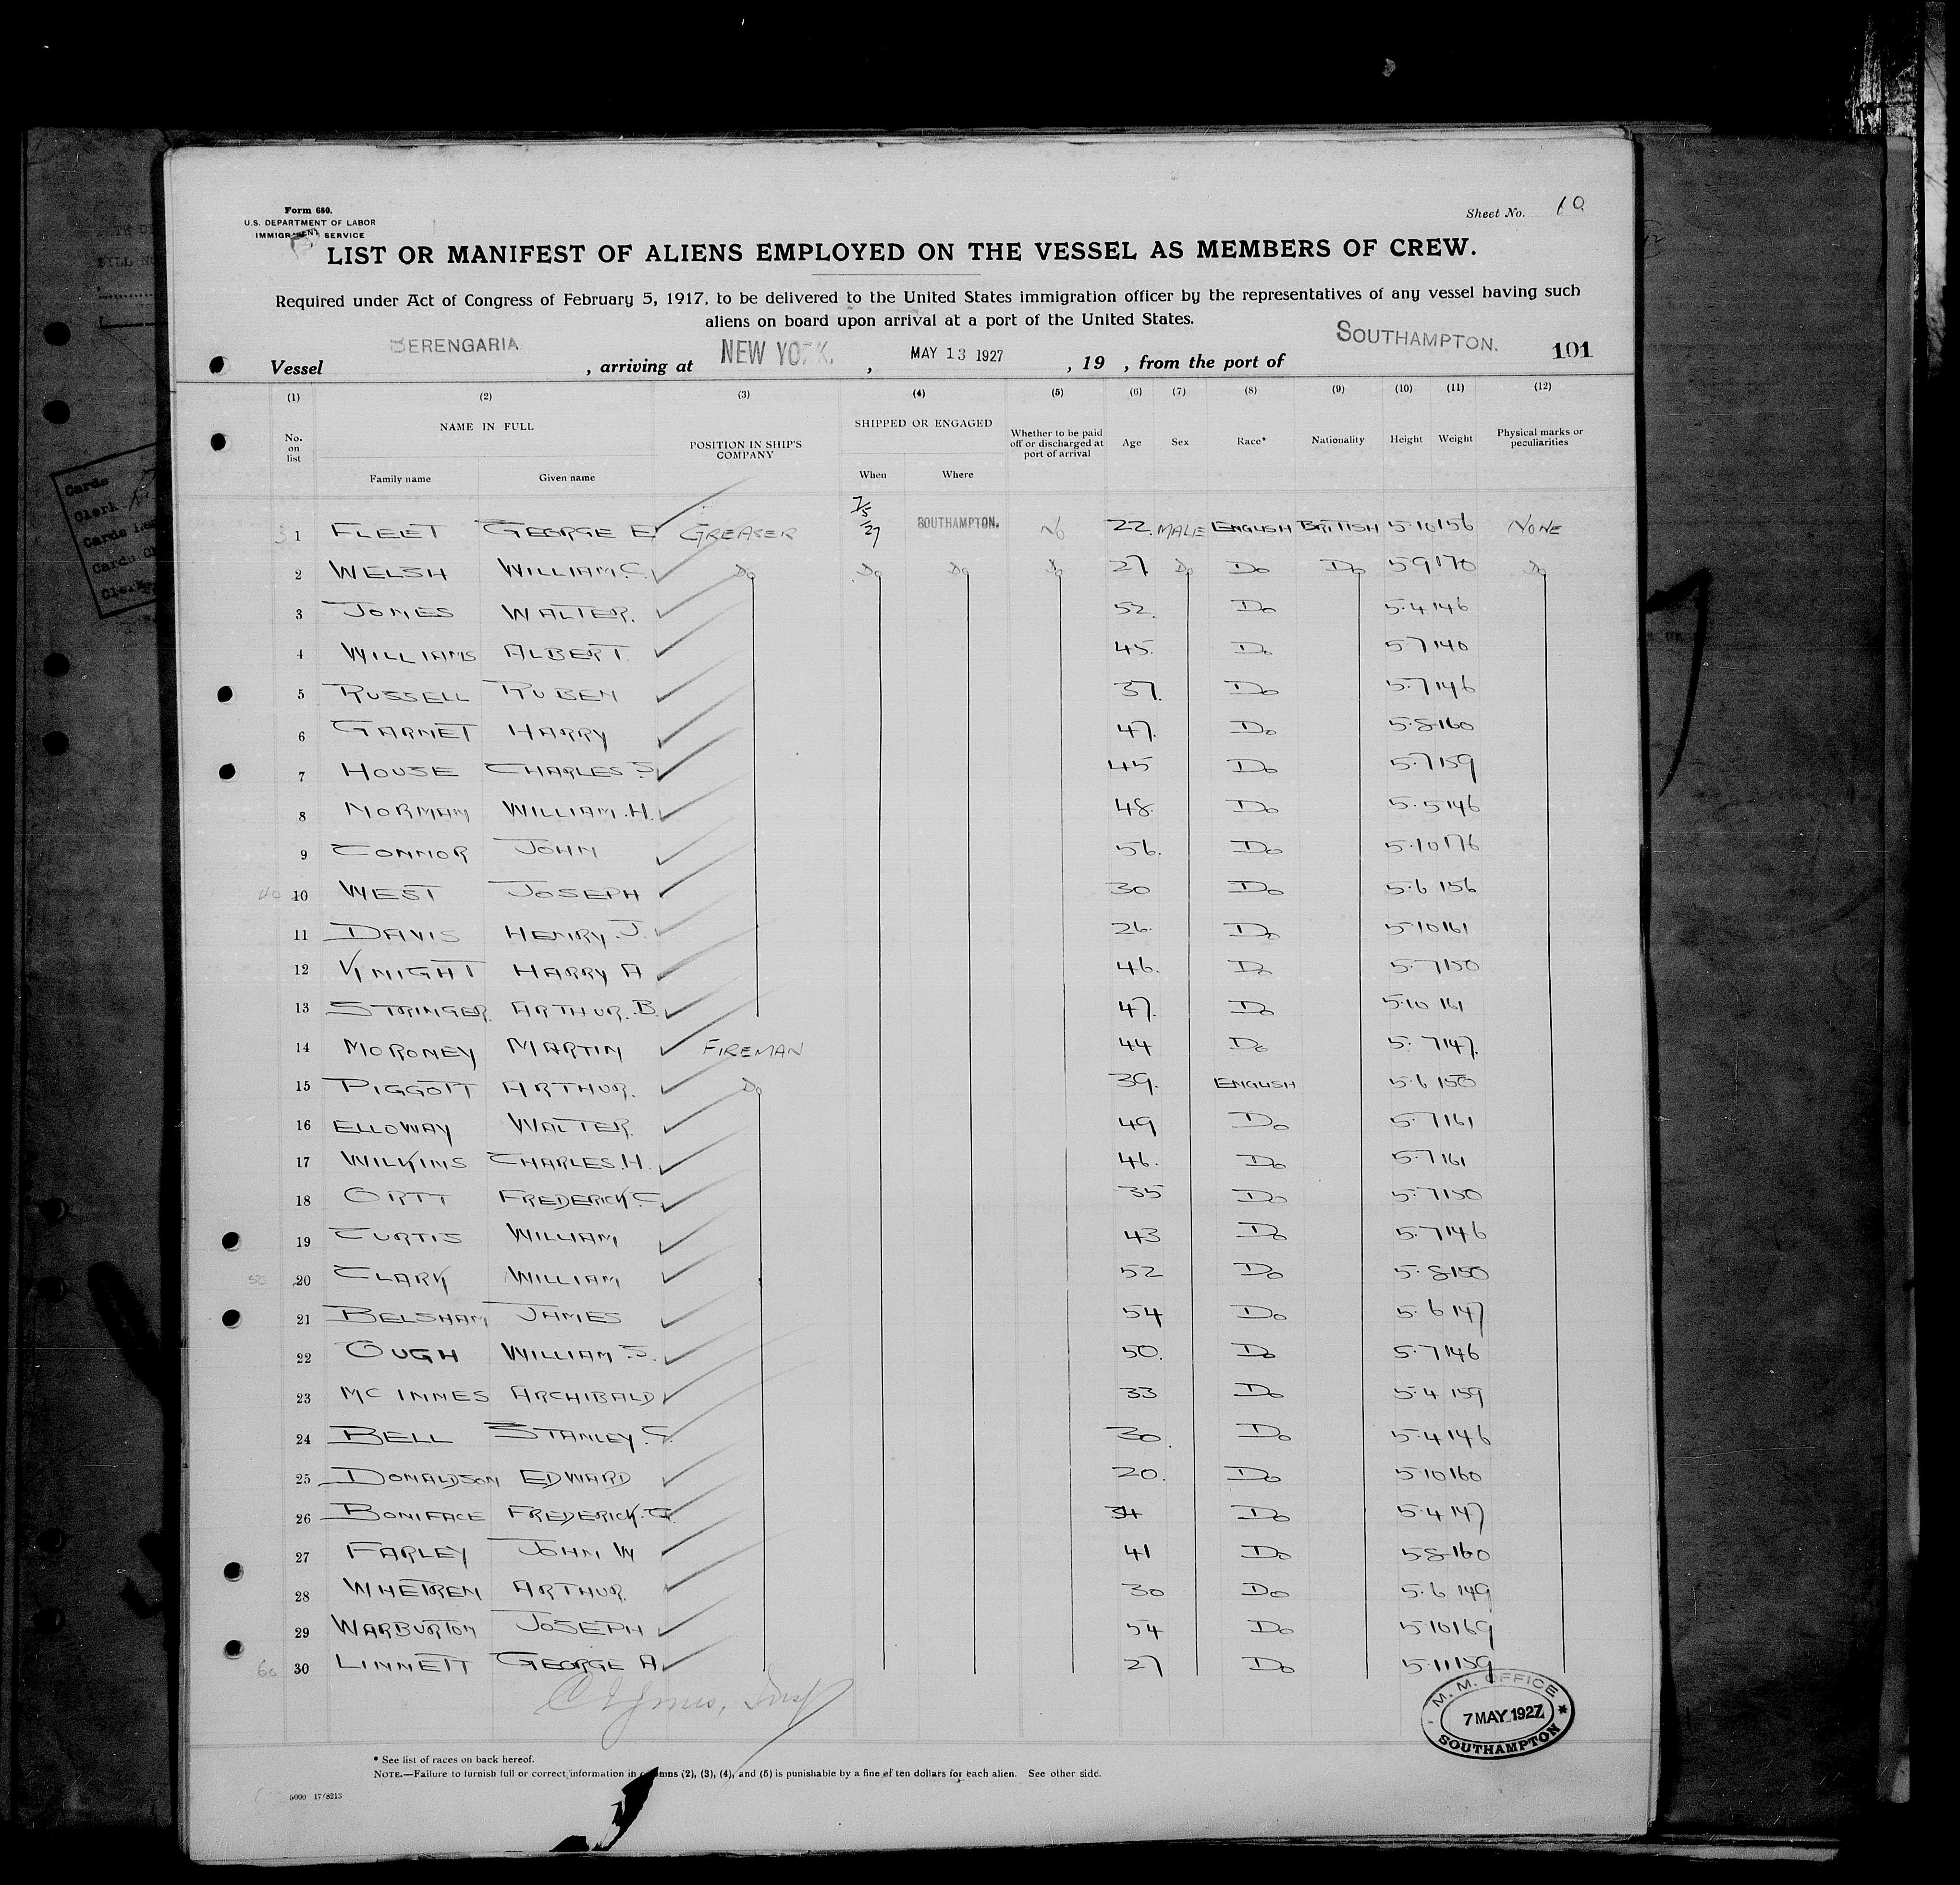 Form 680.
U.S. DEPARTMENT OF LABOR
SERVICE
Sheet No. 10
LIST OR MANIFEST OF ALIENS EMPLOYED ON THE VESSEL AS MEMBERS OF CREW.
Required under Act of Congress of February 5, 1917, to be delivered to the United States immigration officer by the representatives of any vessel having such
aliens on board upon arrival at a port of the United States.
Vessel BERENGARIA, arriving at NEW YORK, MAY 13 1927, 19 , from the port of SOUTHAMPTON. 101
(1) (2) (3) (4) (5) (6) (7) (8) (9) (10) (11) (12)
No. on list NAME IN FULL POSITION IN SHIP'S COMPANY SHIPPED OR ENGAGED Whether to be paid off or discharged at port of arrival Age Sex Race* Nationality Height Weight Physical marks or peculiarities
Family name Given name When Where
1 FLEET GEORGE E GREASER 7/5/27 SOUTHAMPTON. No 22. MALE ENGLISH BRITISH 5.10 156 NONE
2 WELSH WILLIAM.C. Do Do Do Do 27 Do Do Do 5 9 170 Do
3 JONES WALTER. 52. Do 5.4 146
4 WILLIAMS ALBERT. 45. Do 5 7 140
5 RUSSELL RUBEN 37. Do 5.7 146
6 GARNET HARRY 47. Do 5.8 160
7 HOUSE CHARLES S 45 Do 5.7 159
8 NORMAN WILLIAM.H. 48. Do 5.5 146
9 CONNOR JOHN 56. Do 5.10 176
40 10 WEST JOSEPH 30 Do 5.6 156
11 DAVIS HENRY.J. 26. Do 5.10 161
12 KNIGHT HARRY A 46. Do 5.7 150
13 STRINGER. ARTHUR.B. 47. Do 5.10 161
14 MORONEY MARTIN FIREMAN 44 Do 5.7 147.
15 PIGGOTT ARTHUR. Do 39. ENGLISH 5.6 150
16 ELLOWAY WALTER. 49 Do 5.7 161
17 WILKINS CHARLES.H. 46. Do 5.7 161
18 ORTT FREDERICK.C. 35 Do 5.7 150
19 CURTIS WILLIAM 43 Do 5.7 146
50 20 CLARK WILLIAM 52 Do 5.8 150
21 BELSHAM JAMES 54 Do 5.6 147
22 OUGH WILLIAM.S. 50. Do 5.7 146
23 MC INNES ARCHIBALD 33 Do 5.4 159
24 BELL STANLEY. 30. Do 5.4 146
25 DONALDSON EDWARD 20. Do 5.10 160
26 BONIFACE FREDERICK.G. 34 Do 5.4 147
27 FARLEY JOHN W 41 Do 5 8 160
28 WHETREN ARTHUR. 30 Do 5.6 149
29 WARBURTON JOSEPH 54 Do 5.10 169
60 30 LINNETT GEORGE A. 27 Do 5.11 159
M. M. OFFICE
7 MAY 1927
SOUTHAMPTON
* See list of races on back hereof.
NOTE.—Failure to furnish full or correct information in columns (2), (3), (4), and (5) is punishable by a fine of ten dollars for each alien. See other side.
5000 17/8213